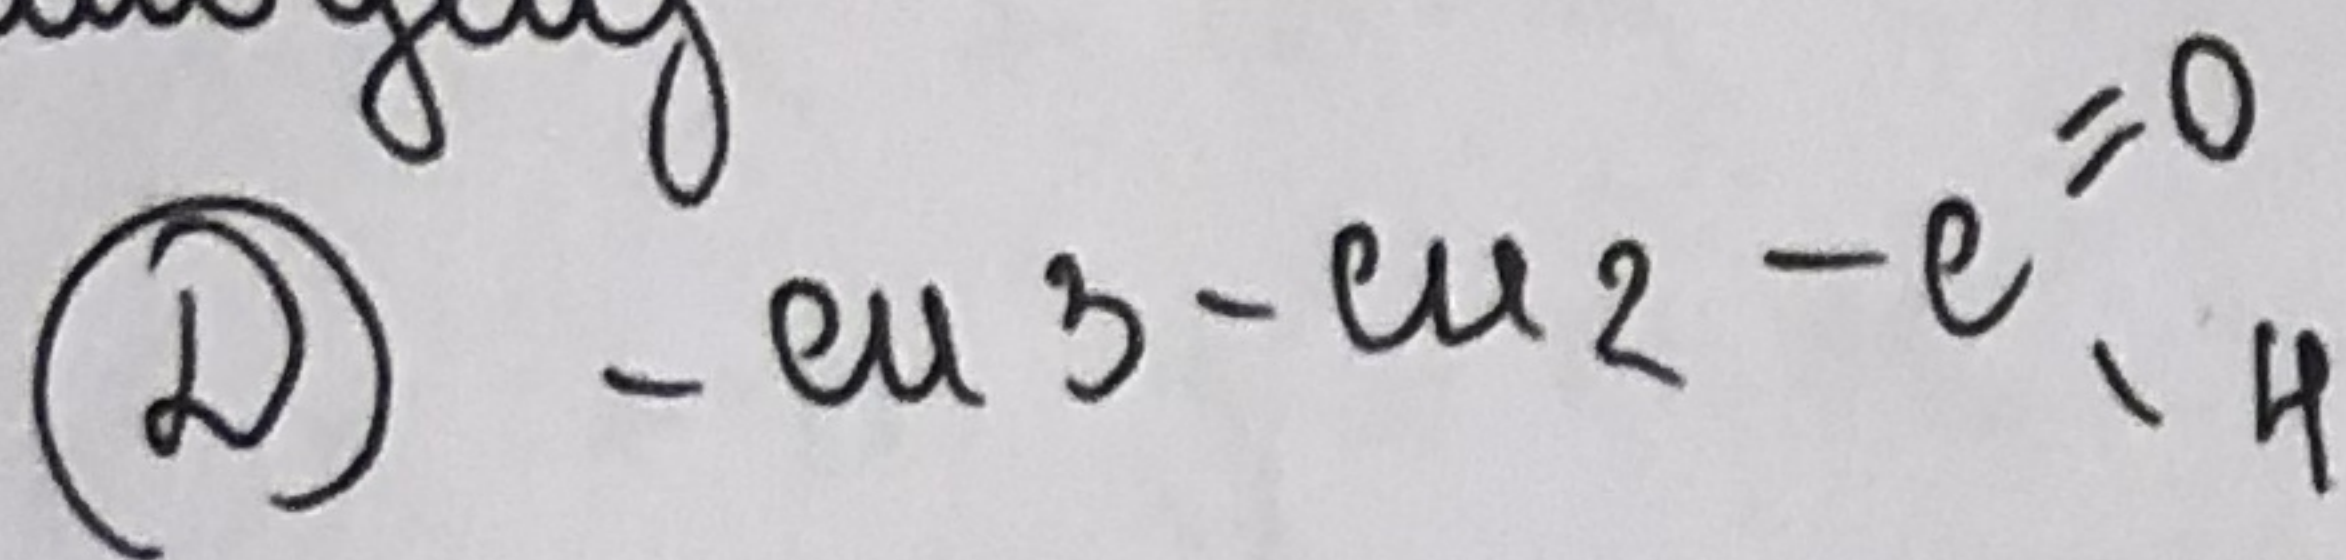 (D) - CH3 - CH2 - C =O
\ H